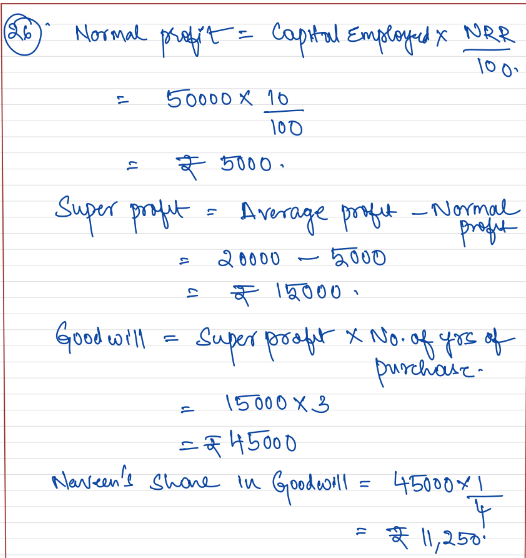 26. Normal profit = Capital Employed x NRR
100.
= 50000 x 10
100
= ₹ 5000.
Super profit = Average profit - Normal
profit
= 20000 - 5000
= ₹ 15000.
Goodwill = Super profit x No. of yrs of
purchase.
= 15000 x 3
= ₹ 45000
Naveen's share in Goodwill = 45000 x 1
4
= ₹ 11,250.